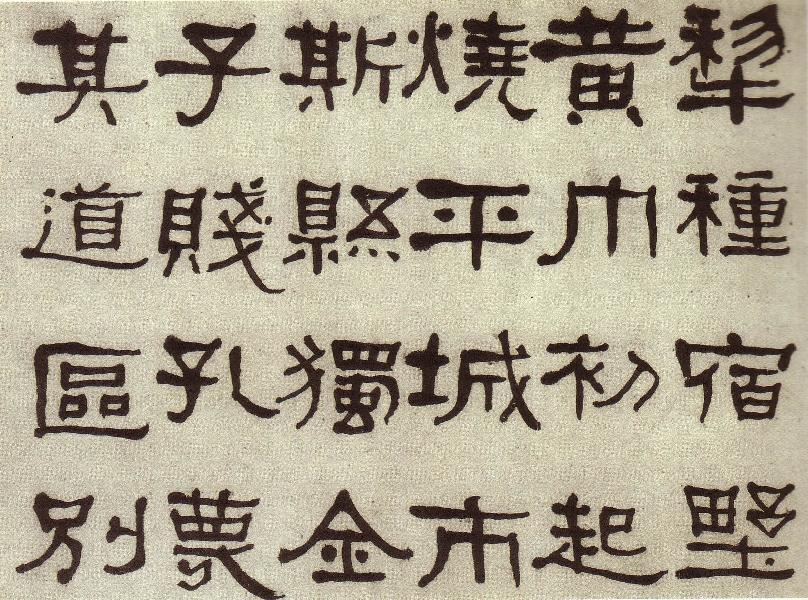 犂種宿野
黃巾初起
燒平城市
斯縣獨全
子賤孔蔑
其道區別